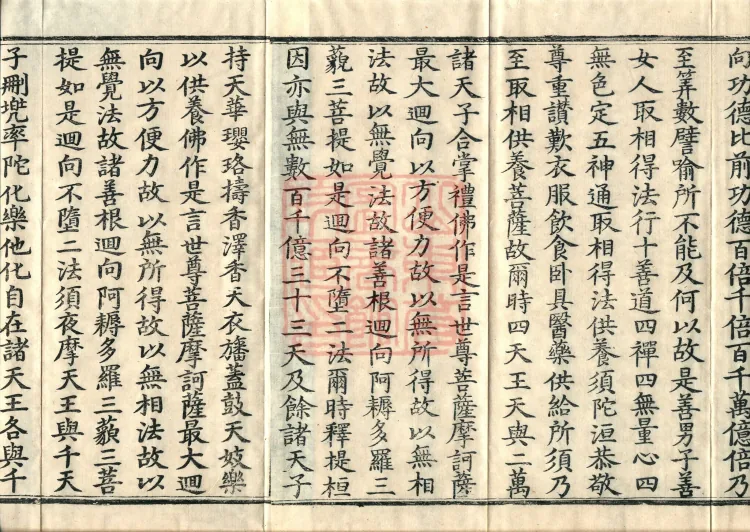 向功德比前功德百倍千倍百千萬億倍乃
至筭數譬喻所不能及何以故是善男子善
女人取相得法行十善道四禪四無量心四
無色定五神通取相得法供養須陀洹恭敬
尊重讚歎衣服飲食卧具醫藥供給所須乃
至取相供養菩薩故爾時四天王天與二萬
諸天子合掌禮佛作是言世尊菩薩摩訶薩
最大迴向以方便力故以無所得故以無相
法故以無覺法故諸善根迴向阿耨多羅三
藐三菩提如是迴向不墮二法爾時釋提桓
因亦與無數百千億三十三天及餘諸天子
持天華瓔珞擣香澤香天衣旛蓋鼓天妓樂
以供養佛作是言世尊菩薩摩訶薩最大迴
向以方便力故以無所得故以無相法故以
無覺法故諸善根迴向阿耨多羅三藐三菩
提如是迴向不墮二法須夜摩天王與千天
子刪兜率陀化樂他化自在諸天王各與千